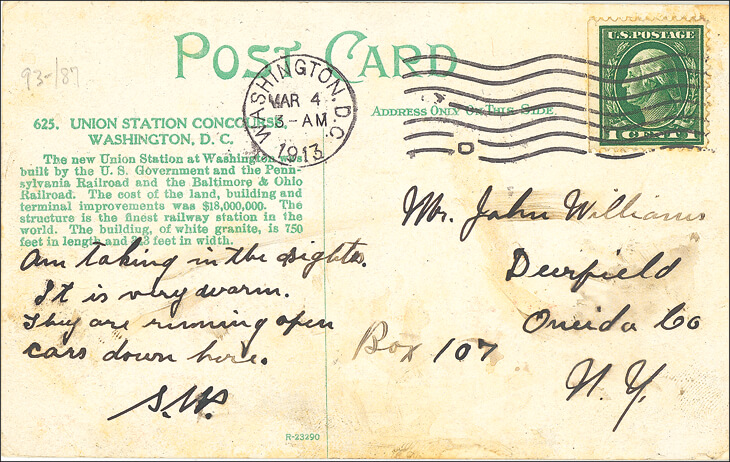 POST CARD
93-187
WASHINGTON, D.C.
MAR 4
3-AM
1913
U.S. POSTAGE
1 CENT 1
ADDRESS ONLY ON THIS SIDE.
625. UNION STATION CONCOURSE,
WASHINGTON, D. C.
The new Union Station at Washington was
built by the U. S. Government and the Penn-
sylvania Railroad and the Baltimore & Ohio
Railroad. The cost of the land, building and
terminal improvements was $18,000,000. The
structure is the finest railway station in the
world. The building, of white granite, is 750
feet in length and feet in width.
Am taking in the sights.
It is very warm.
They are running open
cars down here.
Mr. John Williams
Deerfield
Oneida Co
Box 107
N. Y.
R-23290